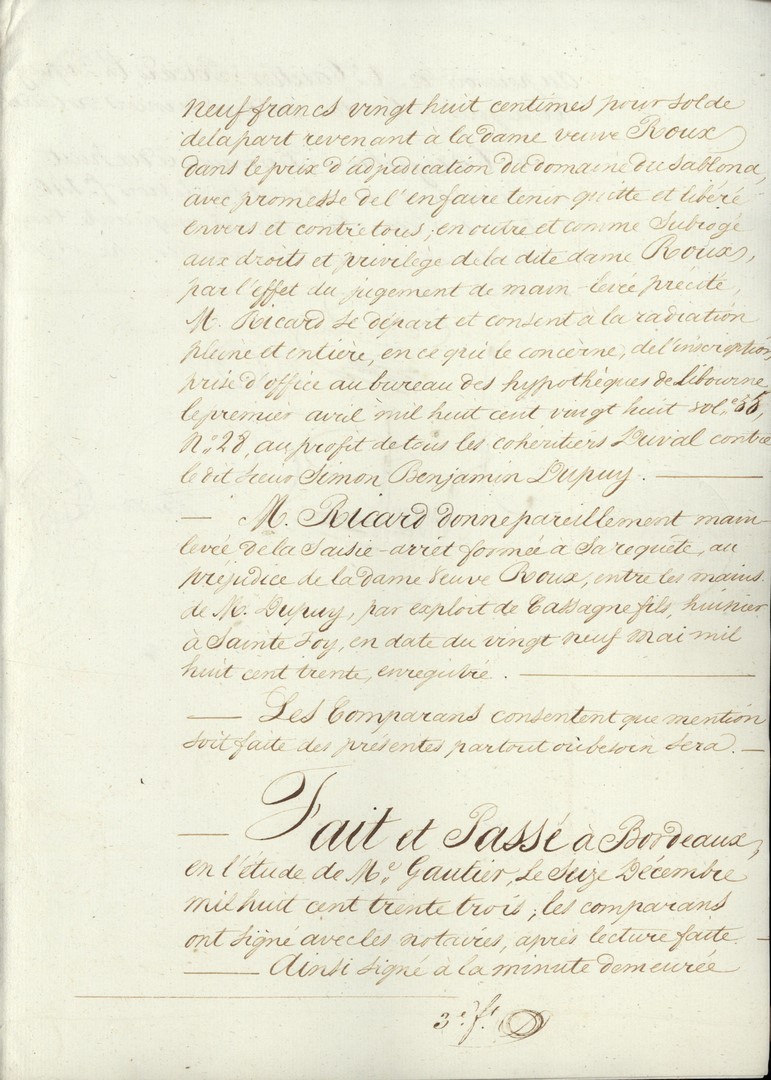 neuf francs vingt huit centimes pour solde
de la part revenant à la dame veuve Roux
dans le prix d'adjudication du domaine du Sablona,
avec promesse de l'en faire tenir quitte et libéré
envers et contre tous; en outre et comme Subrogé
aux droits et privilège de la dite dame Roux,
par l'effet du jugement de main-levée précité,
M. Ricard se départ et consent à la radiation
pleine et entière, en ce qui le concerne, de l'inscription
prise d'office au bureau des hypothèques de Libourne
le premier avril mil huit cent vingt huit vol.e 35,
N.o 28, au profit de tous les cohéritiers Duval contre
le dit sieur Simon Benjamin Dupuy. —
— M. Ricard donne pareillement main-
levée de la Saisie-arrêt formée à Sa requête, au
préjudice de la dame Veuve Roux, entre les mains
de M. Dupuy, par exploit de Cassagne fils, huissier
à Sainte Foy, en date du vingt neuf mai mil
huit cent trente, enregistré. —
— Les Comparans consentent que mention
soit faite des présentes partout où besoin sera. —
— Fait et Passé à Bordeaux,
en l'étude de M.e Gautier, Le Seize Décembre
mil huit cent trente trois; les comparans
ont signé avec les notaires, après lecture faite. —
— Ainsi signé à la minute demeurée
3.e f.t